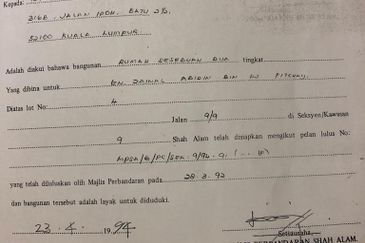 Kepada:
316A, JALAN IPOH, BATU 2½,
52100 KUALA LUMPUR.
Adalah diakui bahawa bangunan RUMAH KESEBUAH DUA tingkat
Yang dibina untuk EN. ZAINAL ABIDIN BIN
Diatas lot No: 4
Jalan 9/9 di Seksyen/Kawasan
9 Shah Alam telah disiapkan mengikut pelan lulus No:
yang telah diluluskan oleh Majlis Perbandaran pada 28.3.92
dan bangunan tersebut adalah layak untuk diduduki.
23.4.1994
Setiausaha,
PERBANDARAN SHAH ALAM.